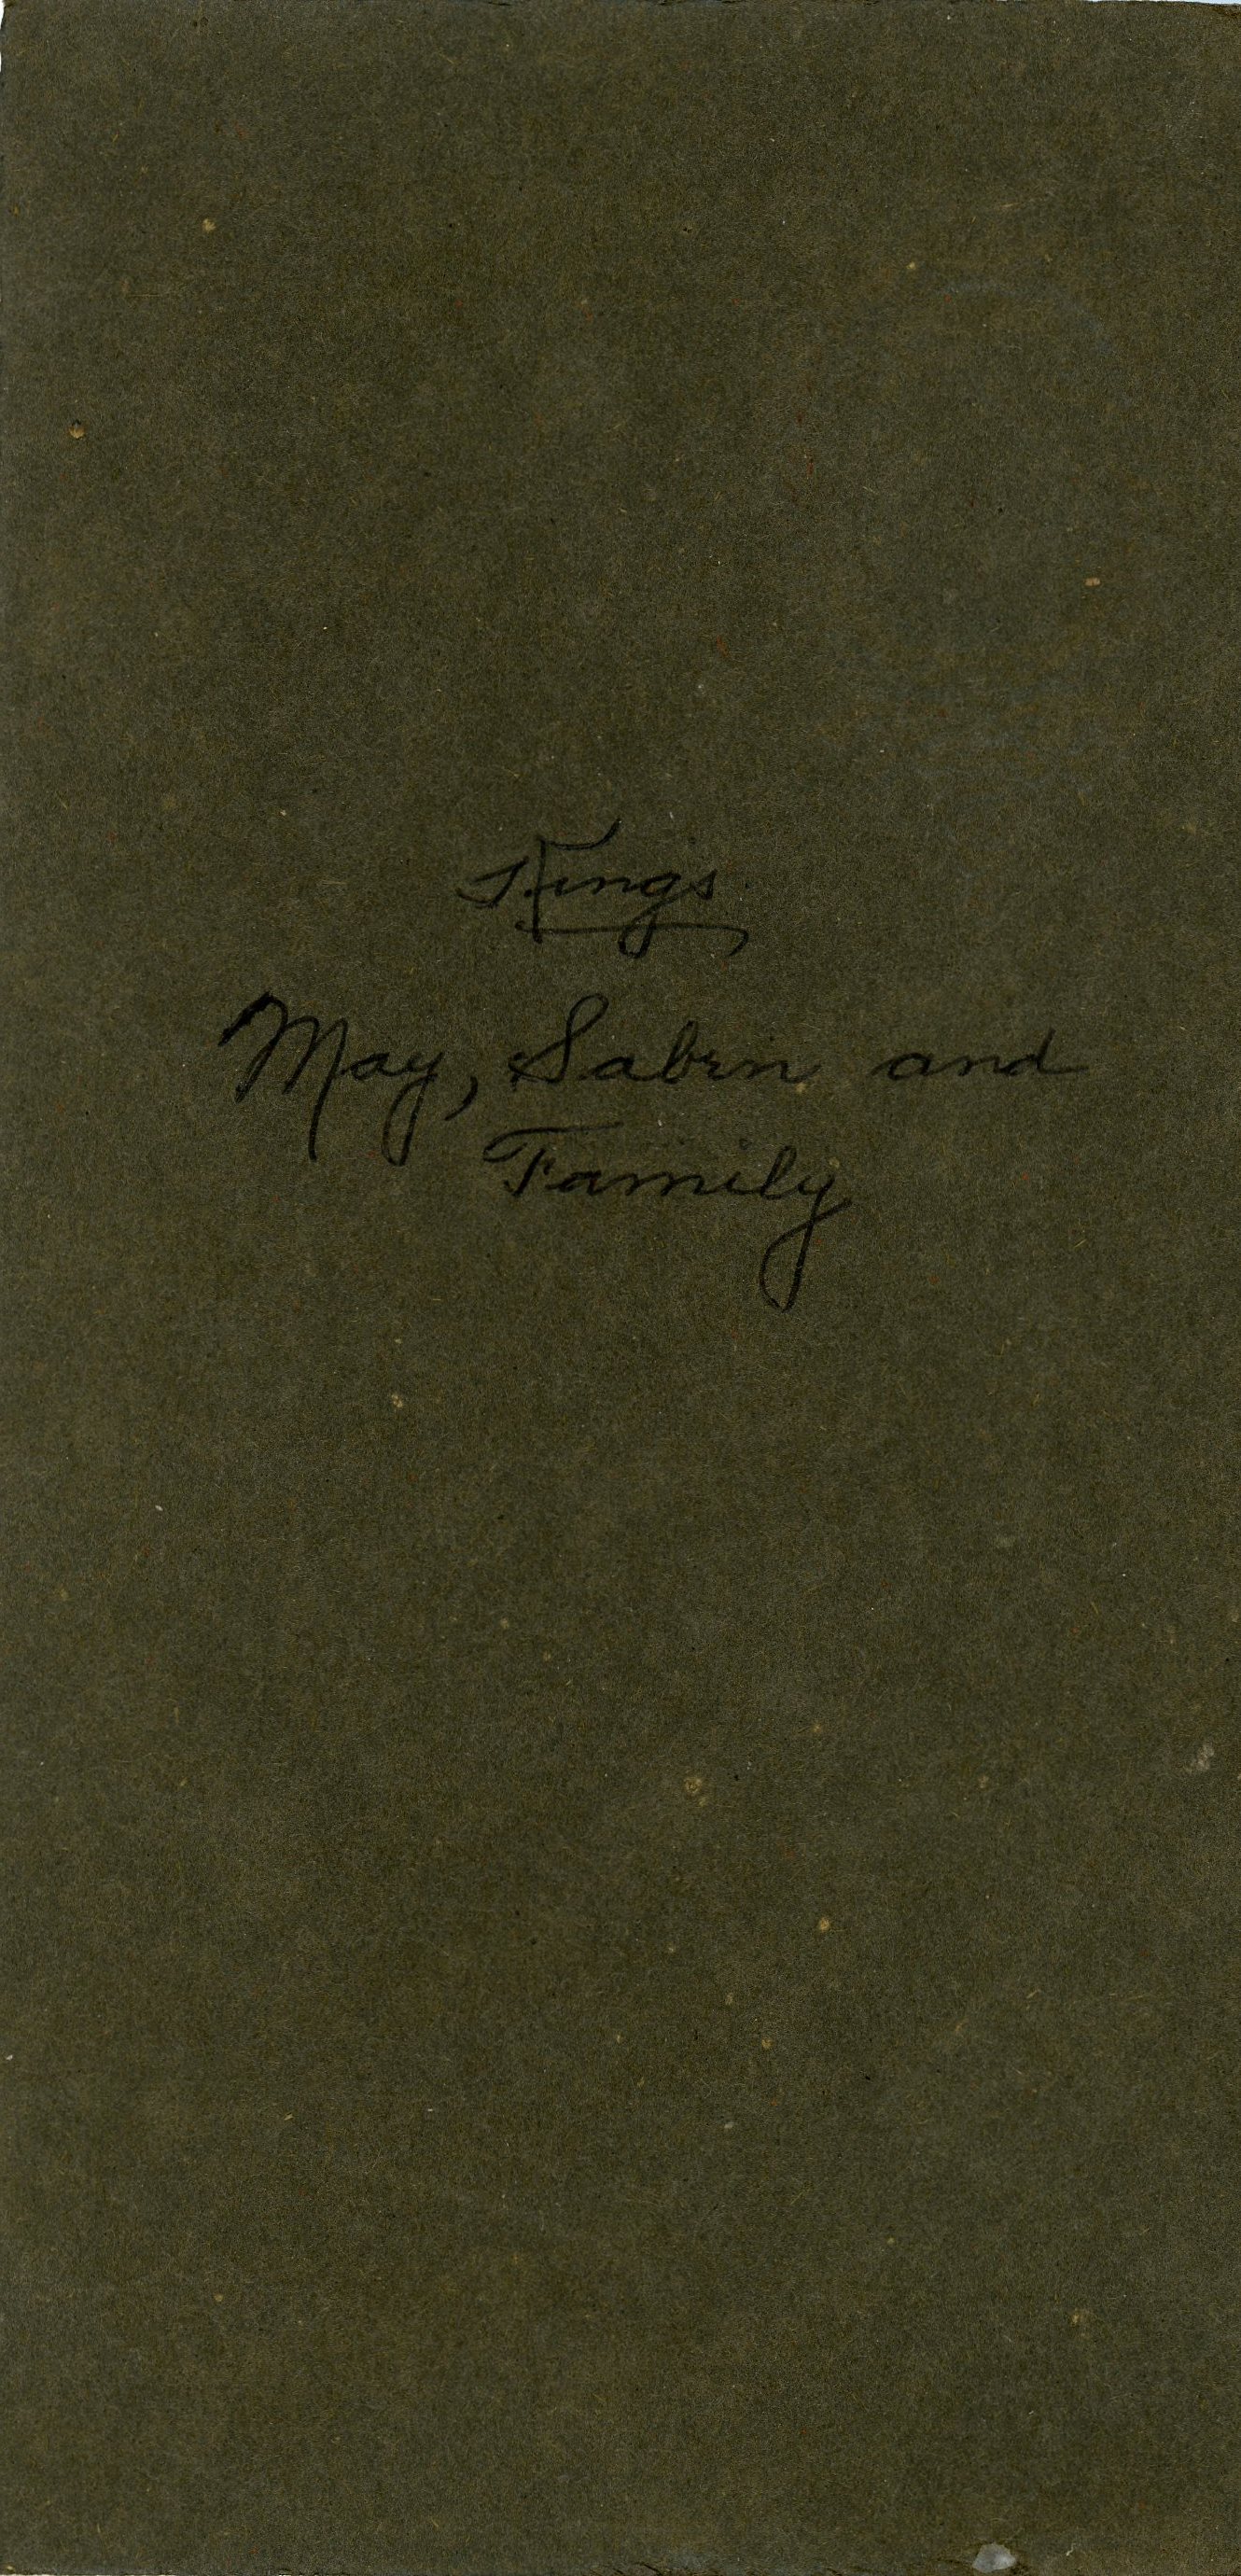 Kings
May, Sabrn and
Family